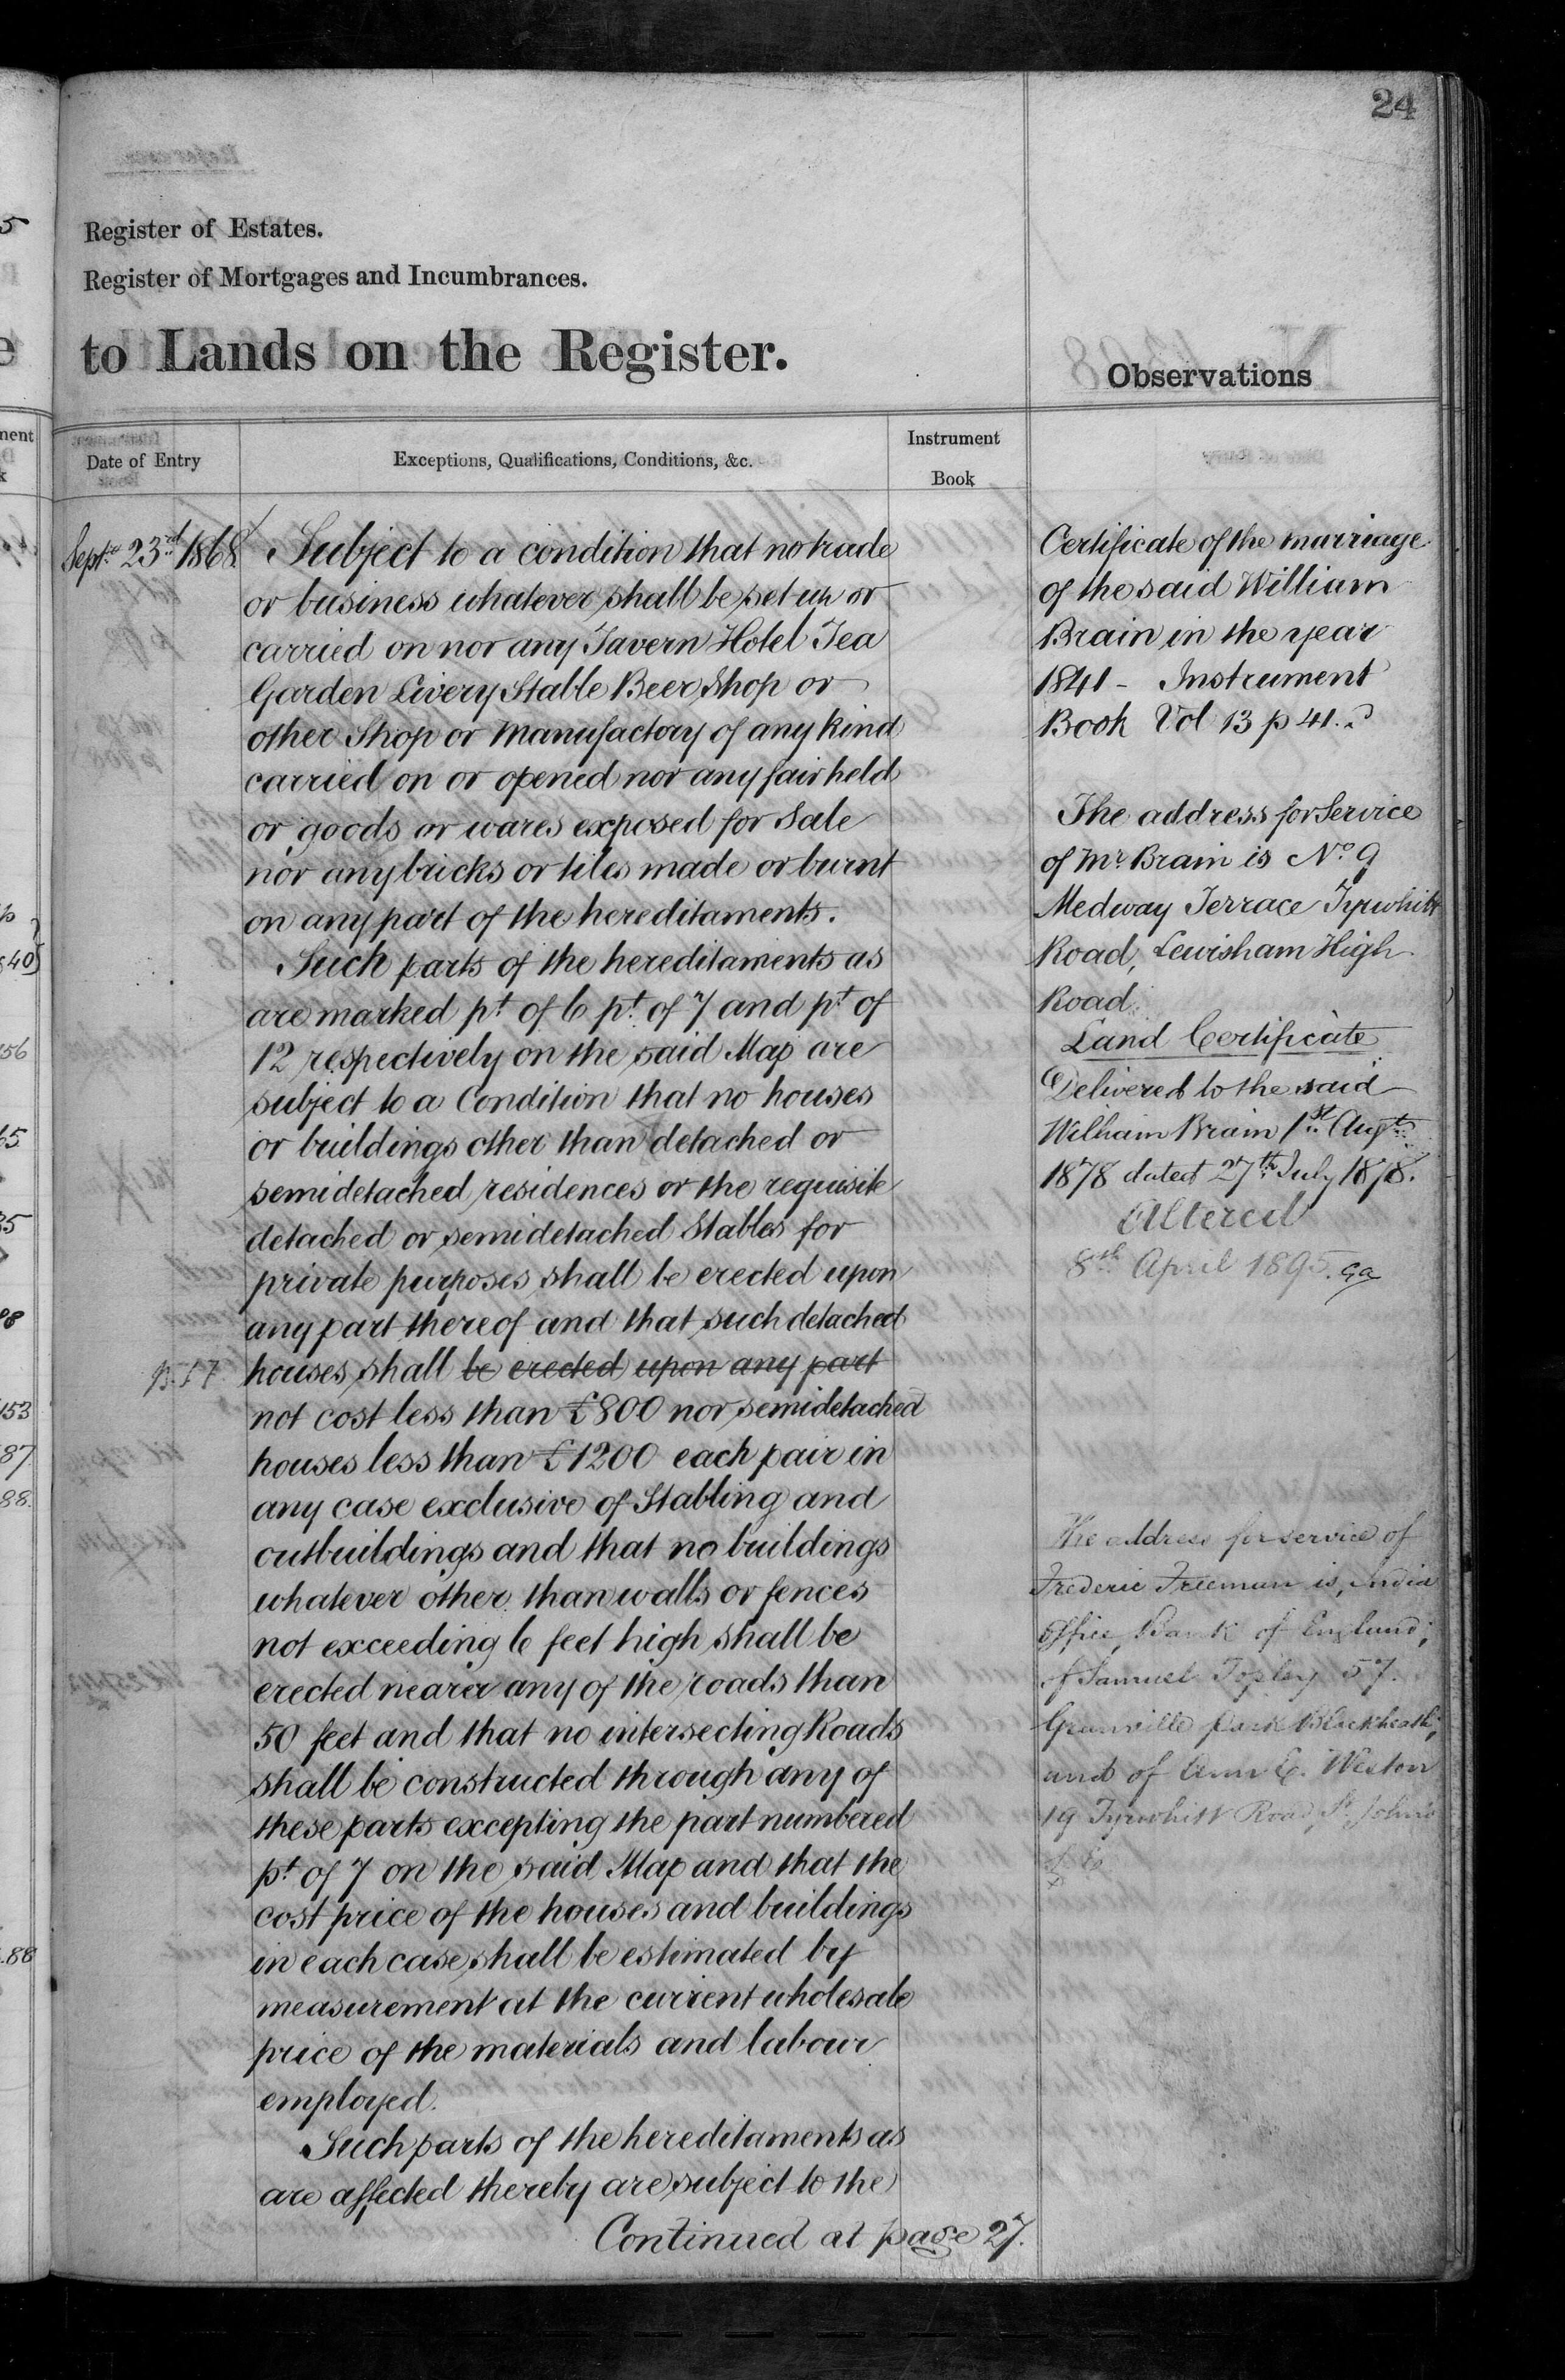 24
Register of Estates.
Register of Mortgages and Incumbrances.
to Lands on the Register.
Observations
Date of Entry
Exceptions, Qualifications, Conditions, &c.
Instrument
Book
Septr 23rd 1868
Subject to a condition that no trade
or business whatever shall be set up or
carried on nor any Tavern Hotel Tea
Garden Livery Stable Beer Shop or
other Shop or Manufactory of any kind
carried on or opened nor any fair held
or goods or wares exposed for Sale
nor any bricks or tiles made or burnt
on any part of the hereditaments.
Such parts of the hereditaments as
are marked pt of 6 pt of 7 and pt of
12 respectively on the said Map are
subject to a Condition that no houses
or buildings other than detached or
semidetached residences or the requisite
detached or semidetached Stables for
private purposes shall be erected upon
any part thereof and that such detached
houses shall be erected upon any part
not cost less than £800 nor semidetached
houses less than £1200 each pair in
any case exclusive of Stabling and
outbuildings and that no buildings
whatever other than walls or fences
not exceeding 6 feet high shall be
erected nearer any of the roads than
50 feet and that no intersecting Roads
shall be constructed through any of
these parts excepting the part numbered
pt of 7 on the said Map and that the
cost price of the houses and buildings
in each case shall be estimated by
measurement at the current wholesale
price of the materials and labour
employed.
Such parts of the hereditaments as
are affected thereby are subject to the
Continued at page 27.
Certificate of the marriage
of the said William
Brain in the year
1841 - Instrument
Book Vol 13 p 41.
The address for Service
of Mr Brain is No 9
Medway Terrace Tyrwhitt
Road, Lewisham High
Road
Land Certificate
Delivered to the said
William Brain 1st Augt
1878 dated 27th July 1878.
Altered
8th April 1895. ga
The address for service of
Frederic Freeman is, India
Office Bank of England;
of Samuel Topley 57.
Granville park Blackheath;
and of Ann E. Weston
19 Tyrwhitt Road St. John's